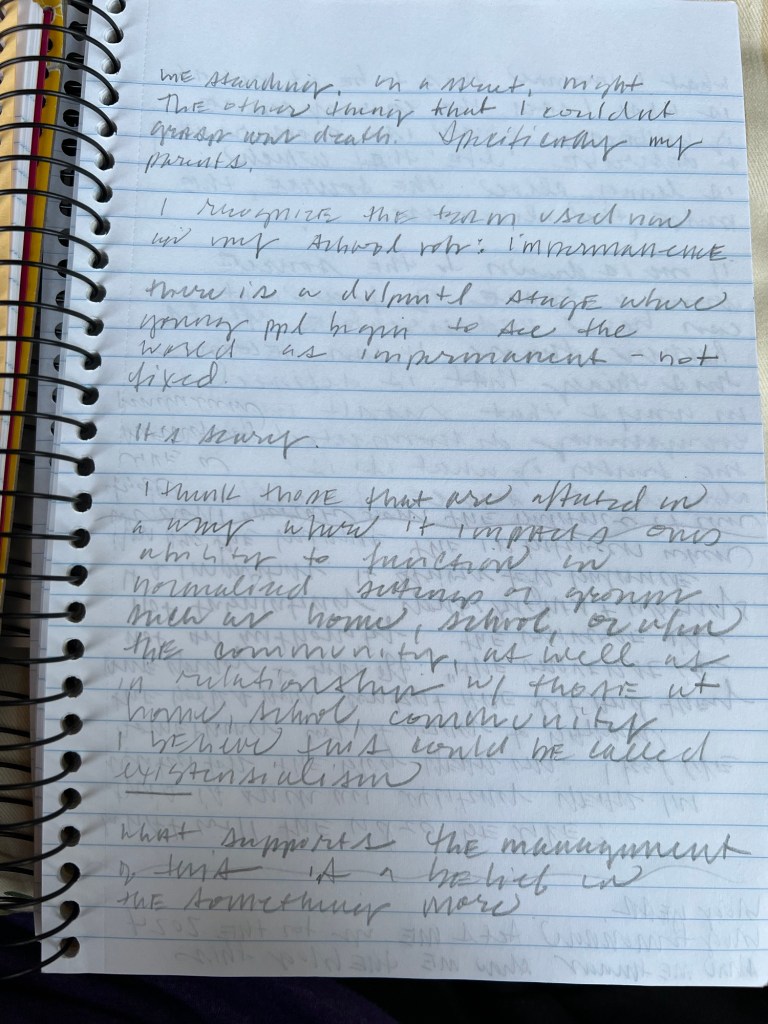 me standing, on a street, night
The other thing that I couldnt
grasp was death. Specifically my
parents.
I recognize the term used now
in my school role: impermanence
there is a dvlpmntl stage where
young ppl begin to see the
world as impermanent - not
fixed.
It's scary.
I think those that are affected in
a way where it impacts ones
ability to function in
normalized settings or groups
such as home, school, or
the community, as well as
in relationships w/ those at
home, school, community
I believe this could be called
existensialism
what supports the management
of this is a belief in
the something more